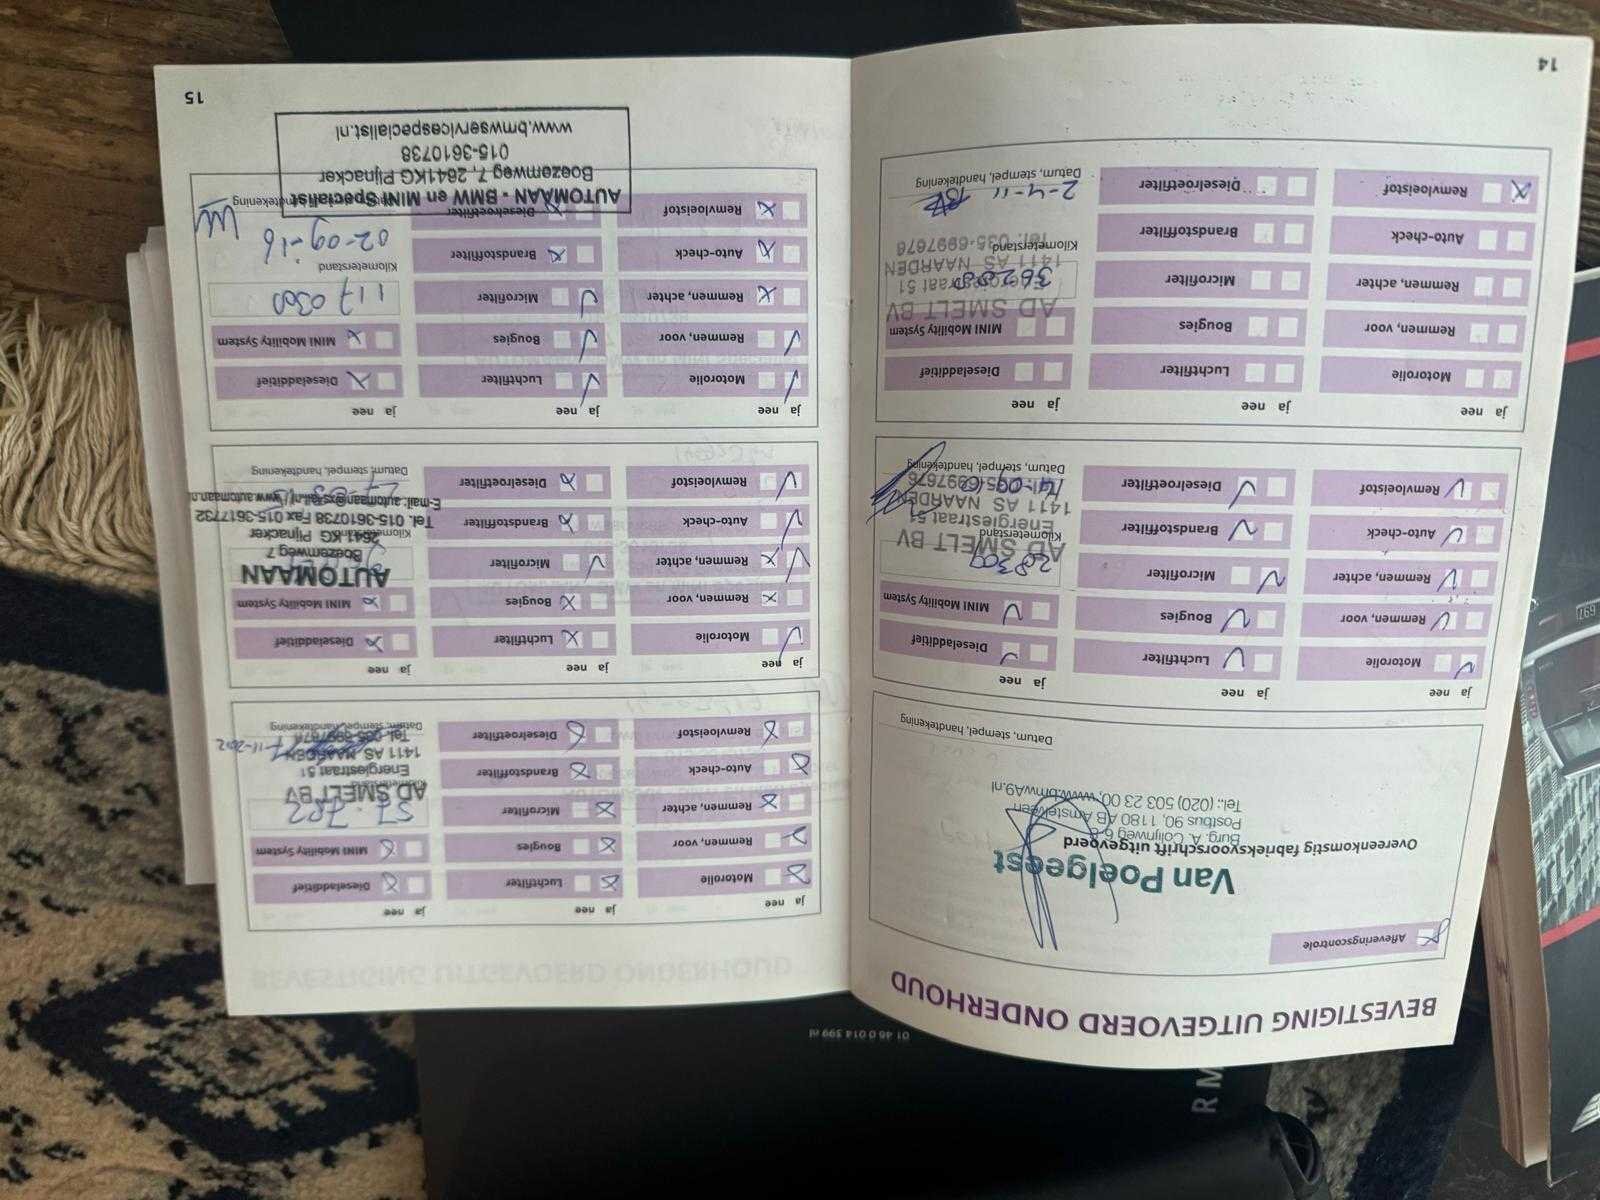 BEVESTIGING UITGEVOERD ONDERHOUD
Afleveringscontrole
Van Poelgeest
Overeenkomstig fabrieksvoorschrift uitgevoerd
Burg. A. Colijnweg 6-8
Postbus 90, 1180 AB Amstelveen
Tel.: (020) 503 23 00, www.bmwA9.nl
Datum, stempel, handtekening
ja nee ja nee ja nee
Motorolie Luchtfilter Dieseladditief
Remmen, voor Bougies MINI Mobility System
Remmen, achter Microfilter 28309
AD SMELT BV
Auto-check Brandstoffilter Kilometerstand
Energiestraat 51
1411 AS NAARDEN
Remvloeistof Dieselroetfilter
Datum, stempel, handtekening
ja nee ja nee ja nee
Motorolie Luchtfilter Dieseladditief
Remmen, voor Bougies MINI Mobility System
AD SMELT BV
Remmen, achter Microfilter
Energiestraat 51
1411 AS NAARDEN
Auto-check Brandstoffilter Kilometerstand
Tel. 035-6997676
Remvloeistof Dieselroetfilter 2-4-11
Datum, stempel, handtekening
14
ja nee ja nee ja nee
Motorolie Luchtfilter Dieseladditief
Remmen, voor Bougies MINI Mobility System
Remmen, achter Microfilter 57.702
AD SMELT BV
Auto-check Brandstoffilter Kilometerstand
Energiestraat 51
1411 AS NAARDEN
Remvloeistof Dieselroetfilter
Tel. 035-6997676
Datum, stempel, handtekening
ja nee ja nee ja nee
Motorolie Luchtfilter Dieseladditief
Remmen, voor Bougies MINI Mobility System
AUTOMAAN
Remmen, achter Microfilter
Boezemweg 7
2641 KG Pijnacker
Auto-check Brandstoffilter Kilometerstand
Tel. 015-3610738 Fax 015-3617732
Remvloeistof Dieselroetfilter
Datum, stempel, handtekening
ja nee ja nee ja nee
Motorolie Luchtfilter Dieseladditief
Remmen, voor Bougies MINI Mobility System
Remmen, achter Microfilter 117 0300
Auto-check Brandstoffilter Kilometerstand
02-09-16
Remvloeistof Dieselroetfilter
AUTOMAAN - BMW en MINI Specialist
Boezemweg 7, 2641KG Pijnacker
015-3610738
www.bmwservicespecialist.nl
15
01 46 0 014 399 nl